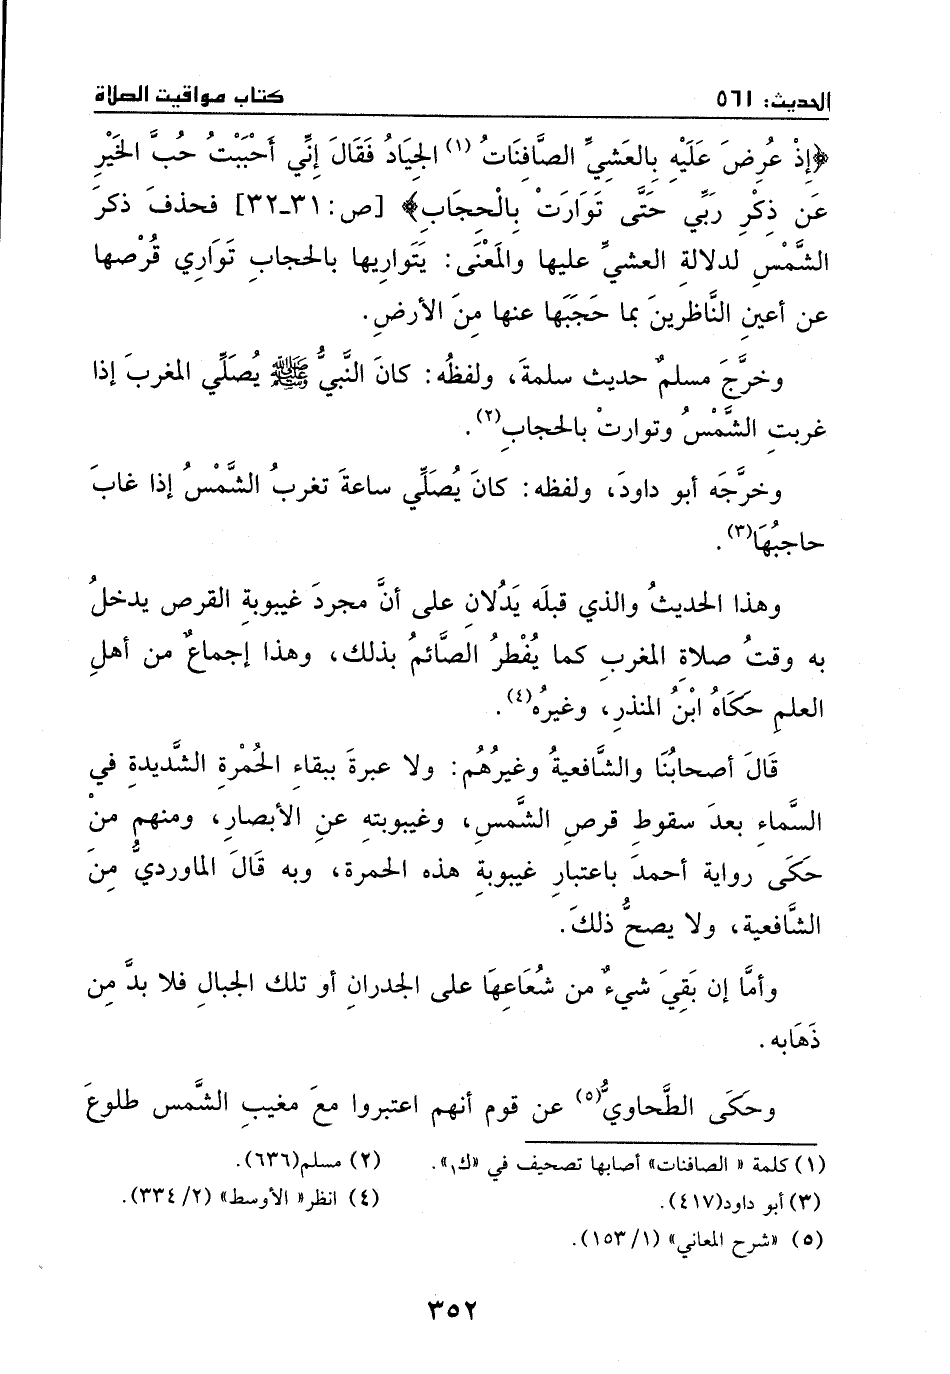 الحديث: ٥٦١ كتاب مواقيت الصلاة
﴿إِذْ عُرِضَ عَلَيْهِ بِالعَشِيِّ الصَّافِنَاتُ (١) الجِيَادُ فَقَالَ إِنِّي أَحْبَبْتُ حُبَّ الخَيْرِ
عَن ذِكْرِ رَبِّي حَتَّى تَوَارَتْ بِالْحِجَابِ﴾ [ص: ٣١-٣٢] فحذفَ ذكرَ
الشَّمْسِ لدلالةِ العشيِّ عليها والمَعْنَى: يَتَواريها بالحجابِ تَوَارِي قُرْصها
عن أعينِ النَّاظرينَ بما حَجَبَها عنها مِنَ الأرضِ.
وخرَّجَ مسلمٌ حديث سلمةَ، ولفظُه: كانَ النَّبيُّ ﷺ يُصَلِّي المغربَ إذا
غربتِ الشَّمْسُ وتوارتْ بالحجابِ(٢).
وخرَّجَه أبو داودَ، ولفظه: كانَ يُصَلِّي ساعةَ تغربُ الشَّمْسُ إذا غابَ
حاجبُهَا(٣).
وهذا الحديثُ والذي قبلَه يَدُلانِ على أنَّ مجردَ غيبوبةِ القرص يدخلُ
به وقتُ صلاةِ المغربِ كما يُفْطرُ الصَّائمُ بذلك، وهذا إجماعٌ من أهلِ
العلمِ حَكَاهُ ابْنُ المنذرِ، وغيرُه(٤).
قَالَ أصحابُنَا والشَّافعيةُ وغيرُهُم: ولا عبرةَ ببقاءِ الحُمْرةِ الشَّديدةِ في
السَّماءِ بعدَ سقوطِ قرصِ الشَّمسِ، وغيبوبتهِ عنِ الأبصارِ، ومنهم مَنْ
حَكَى رواية أحمدَ باعتبارِ غيبوبةِ هذه الحمرة، وبه قَالَ الماورديُّ مِنَ
الشَّافعية، ولا يصحُّ ذلكَ.
وأمَّا إن بَقِيَ شيءٌ من شُعَاعِهَا على الجدرانِ أو تلك الجبالِ فلا بدَّ مِن
ذَهَابه.
وحَكَى الطَّحاويُّ(٥) عن قوم أنهم اعتبروا معَ مغيبِ الشَّمس طلوعَ
(١) كلمة « الصافنات» أصابها تصحيف في «ك١». (٢) مسلم(٦٣٦).
(٣) أبو داود(٤١٧). (٤) انظر« الأوسط» (٢/ ٣٣٤).
(٥) «شرح المعاني» (١/ ١٥٣).
٣٥٢